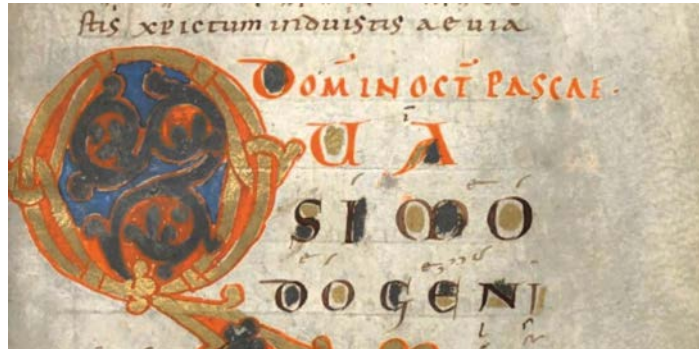 stis xpictum induistis aeuia
DOM̄ IN OCT̄ PASCAE.
QUA
SIMO
DO GENI